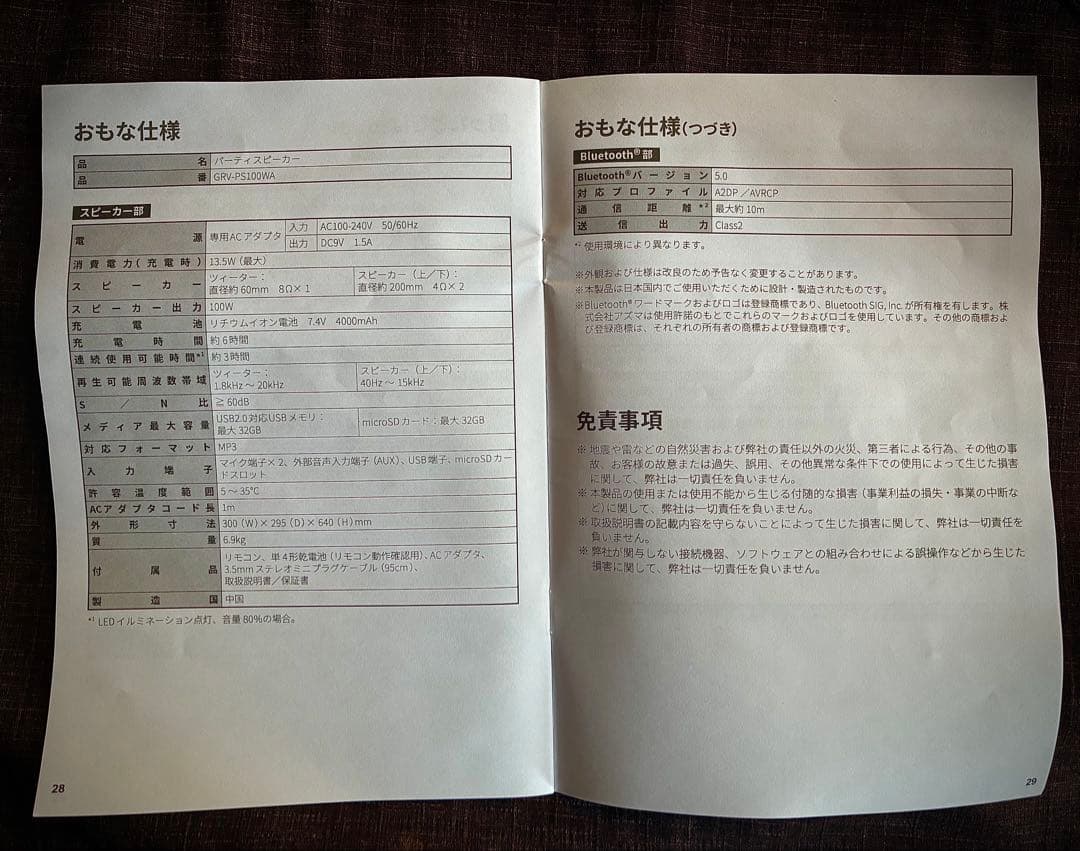 おもな仕様
品名 パーティスピーカー
品番 GRV-PS100WA
スピーカー部
電源 専用ACアダプタ 入力 AC100-240V 50/60Hz
出力 DC9V 1.5A
消費電力(充電時) 13.5W(最大)
スピーカー ツィーター： スピーカー(上／下)：
直径約60mm 8Ω×1 直径約200mm 4Ω×2
スピーカー出力 100W
充電池 リチウムイオン電池 7.4V 4000mAh
充電時間 約6時間
連続使用可能時間*1 約3時間
再生可能周波数帯域 ツィーター： スピーカー(上／下)：
1.8kHz～20kHz 40Hz～15kHz
S／N比 ≧60dB
メディア最大容量 USB2.0対応USBメモリ： microSDカード：最大32GB
最大32GB
対応フォーマット MP3
入力端子 マイク端子×2、外部音声入力端子(AUX)、USB端子、microSDカー
ドスロット
許容温度範囲 5～35℃
ACアダプタコード長 1m
外形寸法 300(W)×295(D)×640(H)mm
質量 6.9kg
付属品 リモコン、単4形乾電池(リモコン動作確認用)、ACアダプタ、
3.5mmステレオミニプラグケーブル(95cm)、
取扱説明書／保証書
製造国 中国
*1 LEDイルミネーション点灯、音量80%の場合。
28
おもな仕様(つづき)
Bluetooth®部
Bluetooth®バージョン 5.0
対応プロファイル A2DP／AVRCP
通信距離*2 最大約10m
送信出力 Class2
*2 使用環境により異なります。
※外観および仕様は改良のため予告なく変更することがあります。
※本製品は日本国内でご使用いただくために設計・製造されたものです。
※Bluetooth®ワードマークおよびロゴは登録商標であり、Bluetooth SIG, Inc.が所有権を有します。株
式会社アズマは使用許諾のもとでこれらのマークおよびロゴを使用しています。その他の商標およ
び登録商標は、それぞれの所有者の商標および登録商標です。
免責事項
※地震や雷などの自然災害および弊社の責任以外の火災、第三者による行為、その他の事
故、お客様の故意または過失、誤用、その他異常な条件下での使用によって生じた損害
に関して、弊社は一切責任を負いません。
※本製品の使用または使用不能から生じる付随的な損害(事業利益の損失・事業の中断な
ど)に関して、弊社は一切責任を負いません。
※取扱説明書の記載内容を守らないことによって生じた損害に関して、弊社は一切責任を
負いません。
※弊社が関与しない接続機器、ソフトウェアとの組み合わせによる誤操作などから生じた
損害に関して、弊社は一切責任を負いません。
29